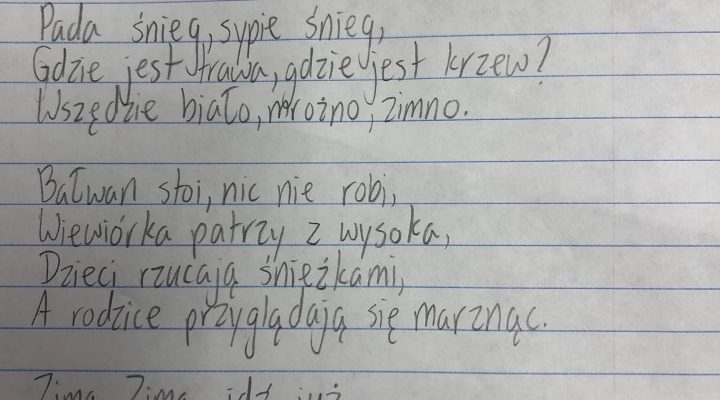 Pada śnieg, sypie śnieg,
Gdzie jest trawa, gdzie jest krzew?
Wszędzie biało, mroźno, zimno.
Bałwan stoi, nic nie robi,
Wiewiórka patrzy z wysoka,
Dzieci rzucają śnieżkami,
A rodzice przyglądają się marznąc.
Zima, Zima, idź już